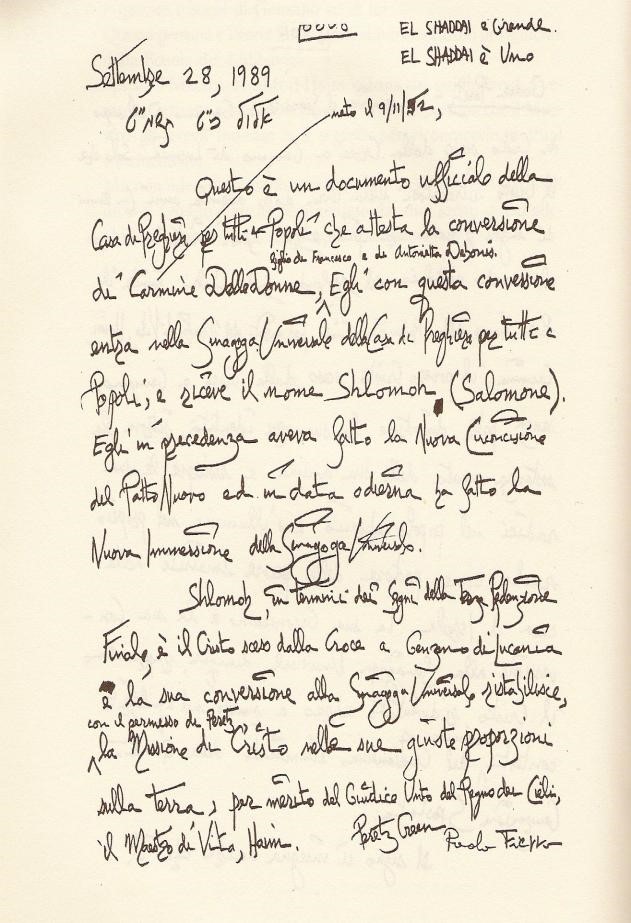 EL SHADDAI è Grande.
EL SHADDAI è Uno
Settembre 28, 1989
nato il 9/11/52,
Questo è un documento ufficiale della
Casa di Preghiera per tutti i Popoli che attesta la conversione
figlio di Francesco e di Antonietta Debonis.
di Carmine DelleDonne, Egli con questa conversione
entra nella Sinagoga Universale della Casa di Preghiera per tutti i
Popoli, e riceve il nome Shlomoh (Salomone).
Egli in precedenza aveva fatto la Nuova Circoncisione
del Patto Nuovo ed in data odierna ha fatto la
Nuova Immersione della Sinagoga Universale.
Shlomoh, in termini dei Segni della Terza Redenzione
Finale, è il Cristo sceso dalla Croce a Genzano di Lucania
e la sua conversione alla Sinagoga Universale ristabilisce,
con il permesso di Peretz,
la Missione di Cristo nelle sue giuste proporzioni
sulla terra, per merito del Giudice Unto del Regno dei Cieli,
il Maestro di Vita, Haim.
Peretz Green
Paolo